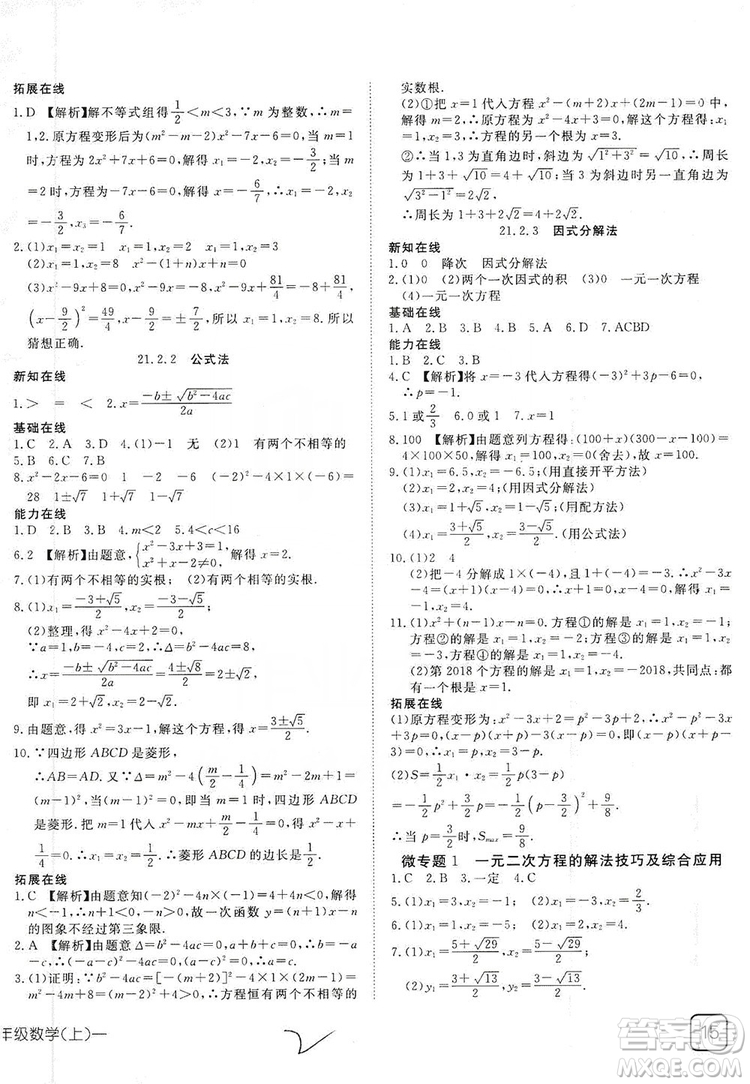 拓展在线
1. D 【解析】解不等式组得 1/2 < m < 3, ∵ m 为整数, ∴ m =
1,2. 原方程变形后为(m²-m-2)x²-7x-6=0, 当 m=1
时, 方程为 2x²+7x+6=0, 解得 x₁=-2, x₂=-3/2; 当
m=2 时, 方程为 7x+6=0, 解得 x=-6/7, ∴ x₁=-2, x₂=
-3/2, x₃=-6/7.
2. (1)x₁=x₂=1 x₁=1, x₂=2 x₁=1, x₂=3
(2)x₁=1, x₂=8
(3)x²-9x+8=0, x²-9x=-8, x²-9x+81/4=-8+81/4,
(x-9/2)²=49/4, x-9/2=±7/2, 所以 x₁=1, x₂=8, 所以
猜想正确.
21.2.2 公式法
新知在线
1. > = < 2. x=(-b±√(b²-4ac))/2a
基础在线
1. C 2. A 3. D 4. (1)-1 无 (2)1 有两个不相等的
5. B 6. C 7. B
8. x²-2x-6=0 1 -2 -6 (-2)²-4×1×(-6)=
28 1±√7 1+√7 1-√7
能力在线
1. D 2. B 3. A 4. m<2 5. c>9 6<c<16
6. 2 【解析】由题意, {x²-3x+2=0, x²-x+2≠0, 解得 x₁=1, x₂=2.
7. (1)有两个不相等的实根; (2)有两个不相等的实根
8. (1)x₁=(-3+√5)/2, x₂=(-3-√5)/2;
(2)整理, 得 x²-4x+2=0,
∵a=1, b=-4, c=2, Δ=b²-4ac=8,
∴x=(-b±√(b²-4ac))/2a=(4±√8)/2=2±√2,
即 x₁=2+√2, x₂=2-√2.
9. 由题意, 解得 a=-1, 故这个方程的解为 x=(3±√5)/2.
10. ∵四边形 ABCD 是菱形,
∴AB=AD. 又∵Δ=m²-4(m/2-1/4)=m²-2m+1=
(m-1)², 当(m-1)²=0 时, 即 m=1 时, 四边形 ABCD
是菱形. 把 m=1 代入 x²-mx+m/2-1/4=0, 得 x²-x+
1/4=0, ∴x₁=x₂=1/2, ∴菱形 ABCD 的边长是1/2.
拓展在线
1. C 【解析】由题意知(-2)²-4×1×(-n)<0, 解得
n<-1. ∴n+1<0, -n>0, 故一次函数 y=(n+1)x-n
的图象不经过第三象限.
2. A 【解析】由题意得 Δ=b²-4ac=0, a+b+c=0, ∴b=
-a-c, 代入得(-a-c)²-4ac=0, 即(a-c)²=0, ∴a=c.
3. (1)证明: ∵b²-4ac=[-(m+2)]²-4×1×(2m-1)=
m²-4m+8=(m-2)²+4>0, ∴原方程有两个不相等的
实数根.
(2)①把 x=1 代入方程 x²-(m+2)x+(2m-1)=0 中,
解得 m=2, ∴原方程为 x²-4x+3=0,
解得 x₁=1, x₂=3, ∴方程的另一个根为 x=3.
②当 1,3 为直角边时, 斜边为√(1²+3²)=√10, ∴周长
为 1+3+√10=4+√10; 当 3 为斜边时, 另一直角边为
√(3²-1²)=2√2, ∴周长为 1+3+2√2=4+2√2.
∴周长为 4+√10或 4+2√2.
21.2.3 因式分解法
新知在线
1. 0 0 降次 因式分解法
2. (1)0 (2)两个一次因式的积 (3)0 一元一次方程
(4)一元一次方程
基础在线
1. A 2. B 3. B 4. A 5. A 6. D 7. ACBD
能力在线
1. B 2. C 3. B
4. C 【解析】将 x=-3 代入方程得(-3)²+3p-6=0,
解得 p=-1.
5. 1 或 2/3 6. 0 或 1 7. -1 或 4
8. 100 【解析】由题意列方程得: (100+x)(300-100)=
4×100×50, 解得 x=-200(舍去)或 x=100.
9. (1)x₁=6.5, x₂=-6.5; (用直接开平方法)
(2)x₁=4, x₂=1; (用因式分解法)
(3)x₁=1+√5, x₂=1-√5; (用配方法)
(4)x₁=(3+√5)/2, x₂=(3-√5)/2. (用公式法)
10. (1)2 4
(2)把-4 分解成 1×(-4), 且 1+(-4)=-3, ∴x²-3x
-4=(x+1)(x-4)=0, ∴x₁=-1, x₂=4.
11. (1)方程①的解是 x₁=1, x₂=-1; 方程②的解是 x₁=1,
x₂=-2; 方程③的解是 x₁=1, x₂=-3; 方程④的解是
x₁=1, x₂=-4.
(2)第 2018 个方程的解是 x₁=1, x₂=-2018, 共同点: 都
有一个根 x=1.
拓展在线
(1)原方程变形为: x²-3x+2=p²-3p+2, x²-p²-3x
+3p=0, (x-p)(x+p)-3(x-p)=0, (x-p)(x+p-3)
=0, x₁=p, x₂=3-p.
(2)S=1/2x₁x₂=1/2p(3-p)=-1/2(p-3/2)²+9/8,
∴当 p=3/2 时, Smax=9/8.
微专题 1 一元二次方程的解法技巧及综合应用
1. C 2. B 3. 一定 4. C
5. (1)x₁=1, x₂=3; (2)x₁=0, x₂=2/3.
6. (1)x₁=1, x₂=-5; (2)x₁=-1, x₂=3.
7. (1)x₁=(5+√29)/2, x₂=(5-√29)/2;
(2)y₁=(3+√13)/2, y₂=(3-√13)/2.
年级数学(上)一
2
15
答案
MXQE.COM